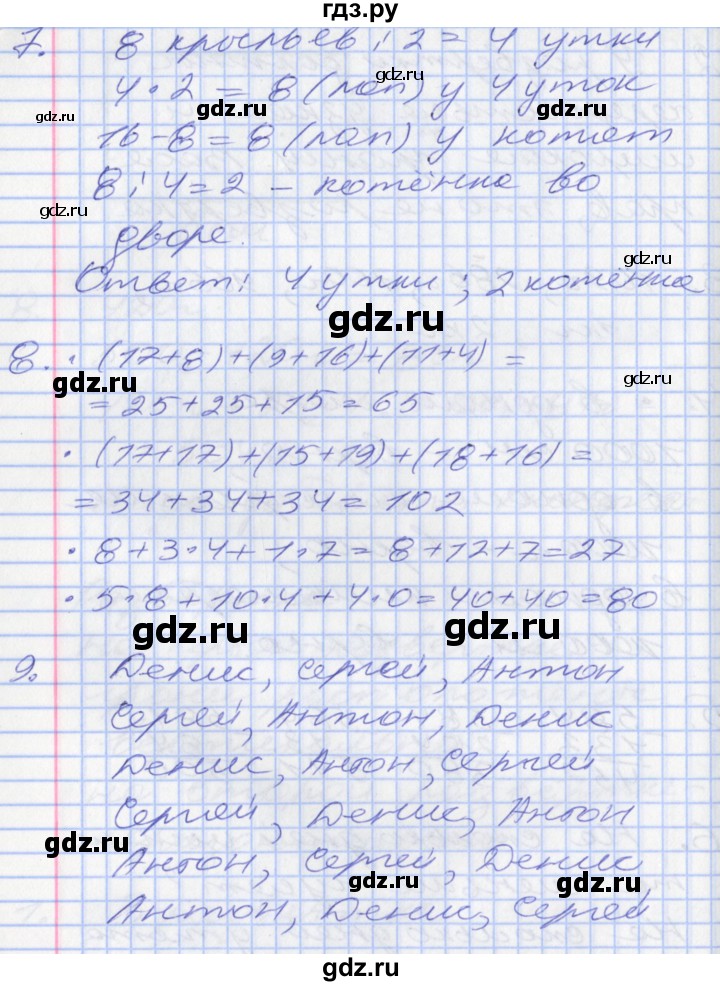 гдз.ру
7. 8 крыльев : 2 = 4 утки
4 · 2 = 8 (лап) у 4 уток
gdz.ru gdz.ru
gdz.ru
16 - 8 = 8 (лап) у котят
8 : 4 = 2 - котёнка во
gdz.ru gdz.ru gdz.ru
дворе.
gdz.ru
Ответ: 4 утки ; 2 котёнка
gdz.ru
8. · (17+8)+(9+16)+(11+4) =
gdz.ru gdz.ru
= 25+25+15 = 65
· (17+17)+(15+19)+(18+16) =
gdz.ru gdz.ru
= 34+34+34 = 102
· 8+3·4+1·7 = 8+12+7=27
gdz.ru gdz.ru gdz.ru
· 5·8+10·4+4·0=40+40=80
gdz.ru gdz.ru
9. Денис, Сергей, Антон
gdz.ru
Сергей, Антон, Денис
gdz.ru gdz.ru
Денис, Антон, Сергей
gdz.ru
Сергей, Денис, Антон
gdz.ru gdz.ru
Антон, Сергей, Денис
gdz.ru gdz.ru
Антон, Денис, Сергей
gdz.ru
gdz.ru